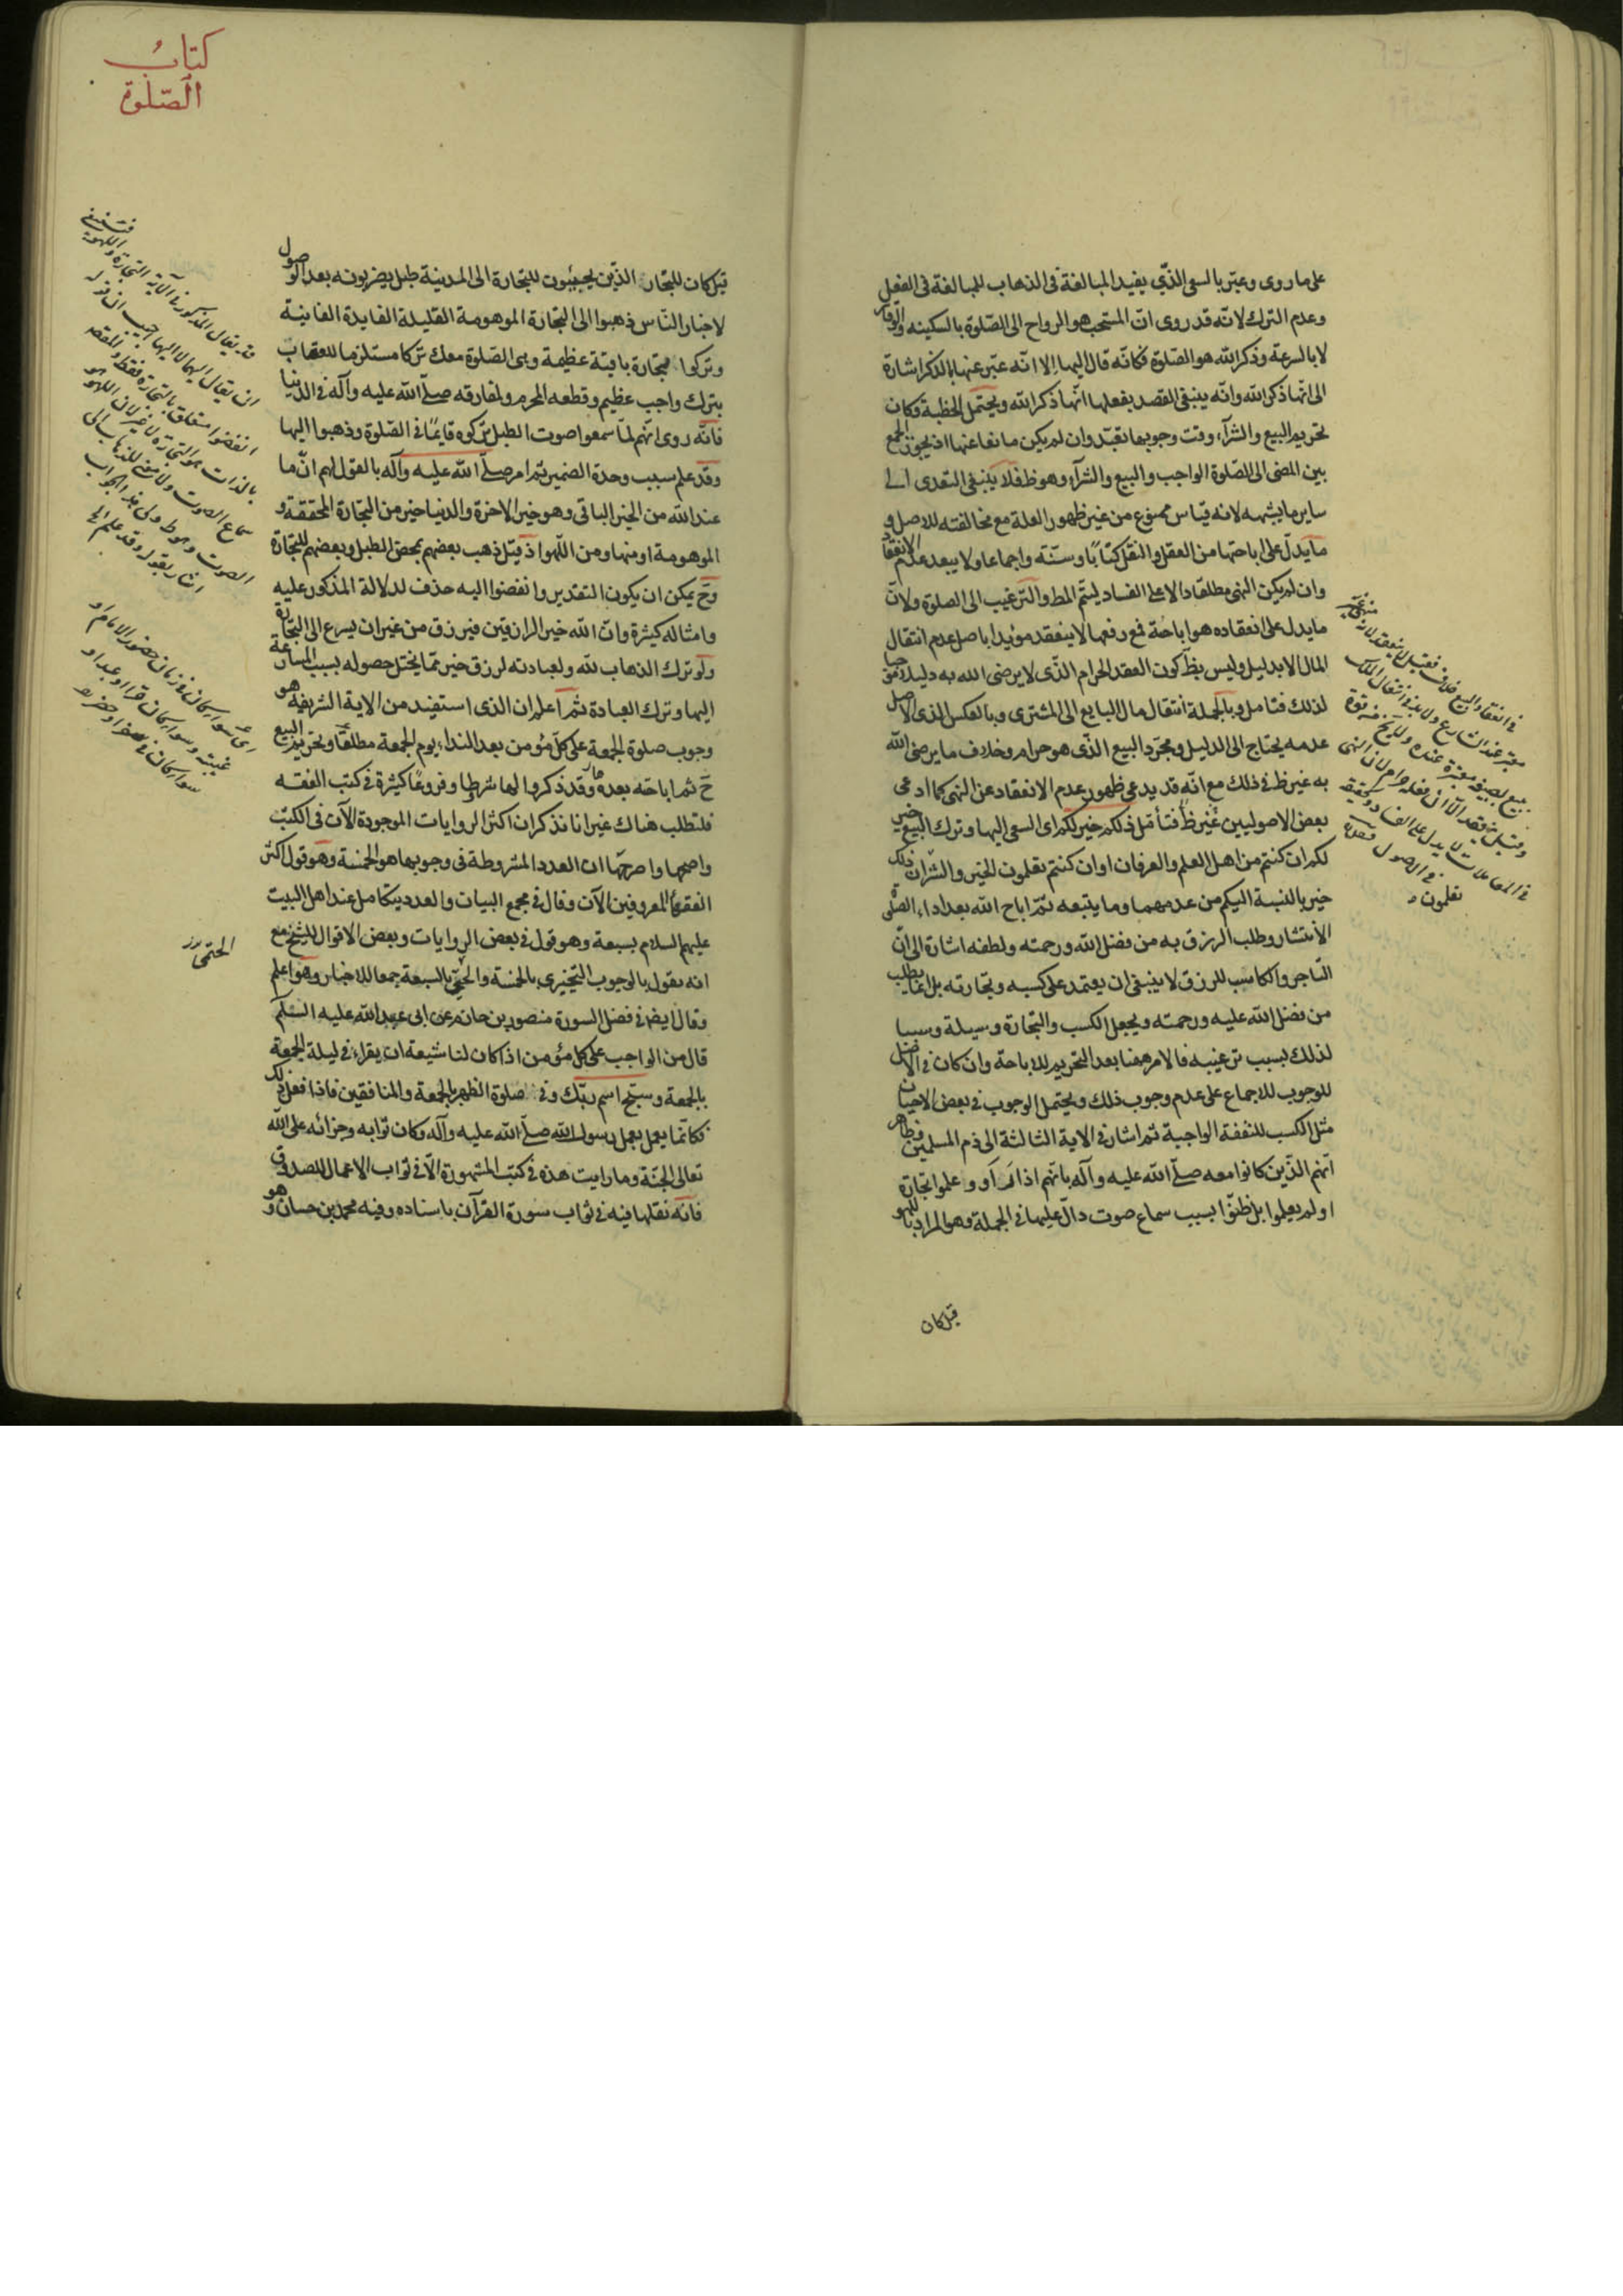 على ما روى وعبّر بالسعى الذّي يفيد المبالغة فى الذهاب للمبالغة فى الفعل
وعدم الترك لانّه قد روى انّ المستحب هو الرواح الى الصّلوة بالسكينه والوقار
لا بالسرعة وذكر الله هو الصّلوة فكانّه قال اليها الا انّه عبّر عنها بالذكر اشارة
الى انّها ذكر الله وانّه ينبغى القصد بفعلها انّها ذكر الله ويحتمل الخطبة وكان
تحريم البيع والشرآء وقت وجوبها تعبّد وان لم يكن مانعا عنها اذ يجوز الجمع
بين المضى الى الصّلوة الواجب والبيع والشرآء وهو ظ فلا ينبغى التعدى الى
ساير ما يشبهه لانه قياس ممنوع من غير ظهور العلة مع مخالفته للاصل و
ما يدلّ على اباحتها من العقل والنقل كتابًا وسنّة واجماعا ولا يبعد عدم الانعقاد
وان لم يكن النهى مطلقا دالا على الفساد ليتمّ المط والترغيب الى الصلوة ولانّ
ما يدل على انعقاده هو اباحة فمع رفعها لا ينعقد مؤيدا باصل عدم انتقال
المال الا بدليل وليس بظ كون العقد الحرام الذّى لا يرضى الله به دليلا موجبا
لذلك فتامل وبالجملة انتقال مال البايع الى المشترى وبالعكس الذى الاصل
عدمه يحتاج الى الدليل ومجرّد البيع الذّى هو حرام وخلاف ما يرضى الله
به غير ظ فى ذلك مع انّه قد يدعى ظهور عدم الانعقاد عن النهى كما ادعى
بعض الاصوليين غير ظ فتأمّل ذلكم خير لكم اى السعى اليها وترك البيع خير
لكم ان كنتم من اهل العلم والعرفان او ان كنتم تعلمون الخير والشّر انّ ذلك
خير بالنسبة اليكم من عدمهما وما يتبعه ثمّ اباح الله بعد اداء الصّلوة
الانتشار وطلب الرزق به من فضل الله ورحمته ولطفه اشارة الى انّ
التاجر والكاسب للرزق لا ينبغى ان يعتمد على كسبه وتجارته بل انّما يطلب
من فضل الله عليه ورحمته ويجعل الكسب والتجارة وسيلة وسببا
لذلك بسبب ترغيبه فالامر ههنا بعد التحريم للاباحة وان كان فى الاصل
للوجوب للاجماع على عدم وجوب ذلك ويحتمل الوجوب فى بعض الاحيان
مثل الكسب للنفقة الواجبة ثم اشار فى الاية الثالثة الى ذم المسلمين وظاهر
انّهم الذّين كانوا معه صلّى الله عليه وآله بانّهم اذا رأو وعلموا تجارة
او لم يعلموا بل ظنوّا بسبب سماع صوت دالّ عليها فى الجملة وهو المراد باللهو
قيل كان
كتاب
الصّلوة
قيل كان للتجار الذّين يجيئون للتجارة الى المدينة طبل يضربونه بعد الوصول
لاخبار النّاس ذهبوا الى التجارة الموهومة القليلة الفايدة الفانية
وتركوا تجارة باقية عظيمة وهى الصّلوة معك تركا مستلزما للعقاب
بترك واجب عظيم وقطعه المحرم ولمفارقه صلّى الله عليه وآله فى الدنيا
فانّه روى انّهم لمّا سمعوا صوت الطبل تركوه قايمًا فى الصّلوة وذهبوا اليها
وقد علم سبب وحدة الضمير ثم امر صلّى الله عليه وآله بالقول لهم انّ ما
عند الله من الخير الباقى وهو خير الاخرة والدنيا خير من التجارة المحققة و
الموهومة او منها ومن اللّهو اذ قيل ذهب بعضهم بمحض الطبل وبعضهم للتجارة
وح يمكن ان يكون التقدير وانفضوا اليه حذف لدلالة المذكور عليه
وامثاله كثيرة وانّ الله خير الرازقين فيرزق من غير ان يسرع الى التجارة
ولو ترك الذهاب لله ولعبادته لرزق خير ممّا يختل حصوله بسبب المسارعة
اليها وترك العبادة ثمّ اعلم ان الذى استفيد من الاية الشريفة هو
وجوب صلوة الجمعة على كلّ مؤمن بعد النداء يوم الجمعة مطلقًا وتحريم البيع
ح ثم اباحته بعده وقد ذكروا لها شرطا وفروعًا كثيرة فى كتب الفقه
فلتطلب هناك غير انا نذكر ان اكثر الروايات الموجودة الآن فى الكتب
واصحها واصرحها ان العدد المشروطة فى وجوبها هو الخمسة وهو قول اكثر
الفقهاء المعروفين الآن وقال فى مجمع البيان والعدد يتكامل عند اهل البيت
عليهم السلام بسبعة وهو قول فى بعض الروايات وبعض الاقوال للشيخ مع
انه يقول بالوجوب التخييرى بالخمسة والحتمى بالسبعة جمعا للاخبار وهو اعلم
وقال ايض فى فضل السورة منصور بن حازم عن ابى عبد الله عليه السّلم
قال من الواجب على كل مؤمن اذا كان لنا شيعة ان يقراء فى ليلة الجمعة
بالجمعة وسبّح اسم ربّك وفى صلوة الظهر بالجمعة والمنافقين فاذا فعل ذلك
فكانّما يعمل بعمل رسول الله صلّى الله عليه وآله وكان ثوابه وجزائه على الله
تعالى الجنّة وما رايت هذه فى كتب المشهورة الّا فى ثواب الاعمال للصدوق
فانّه نقلها فيه فى ثواب سورة القرآن باسناده وفيه محمد بن حسان وهو
الحتمى